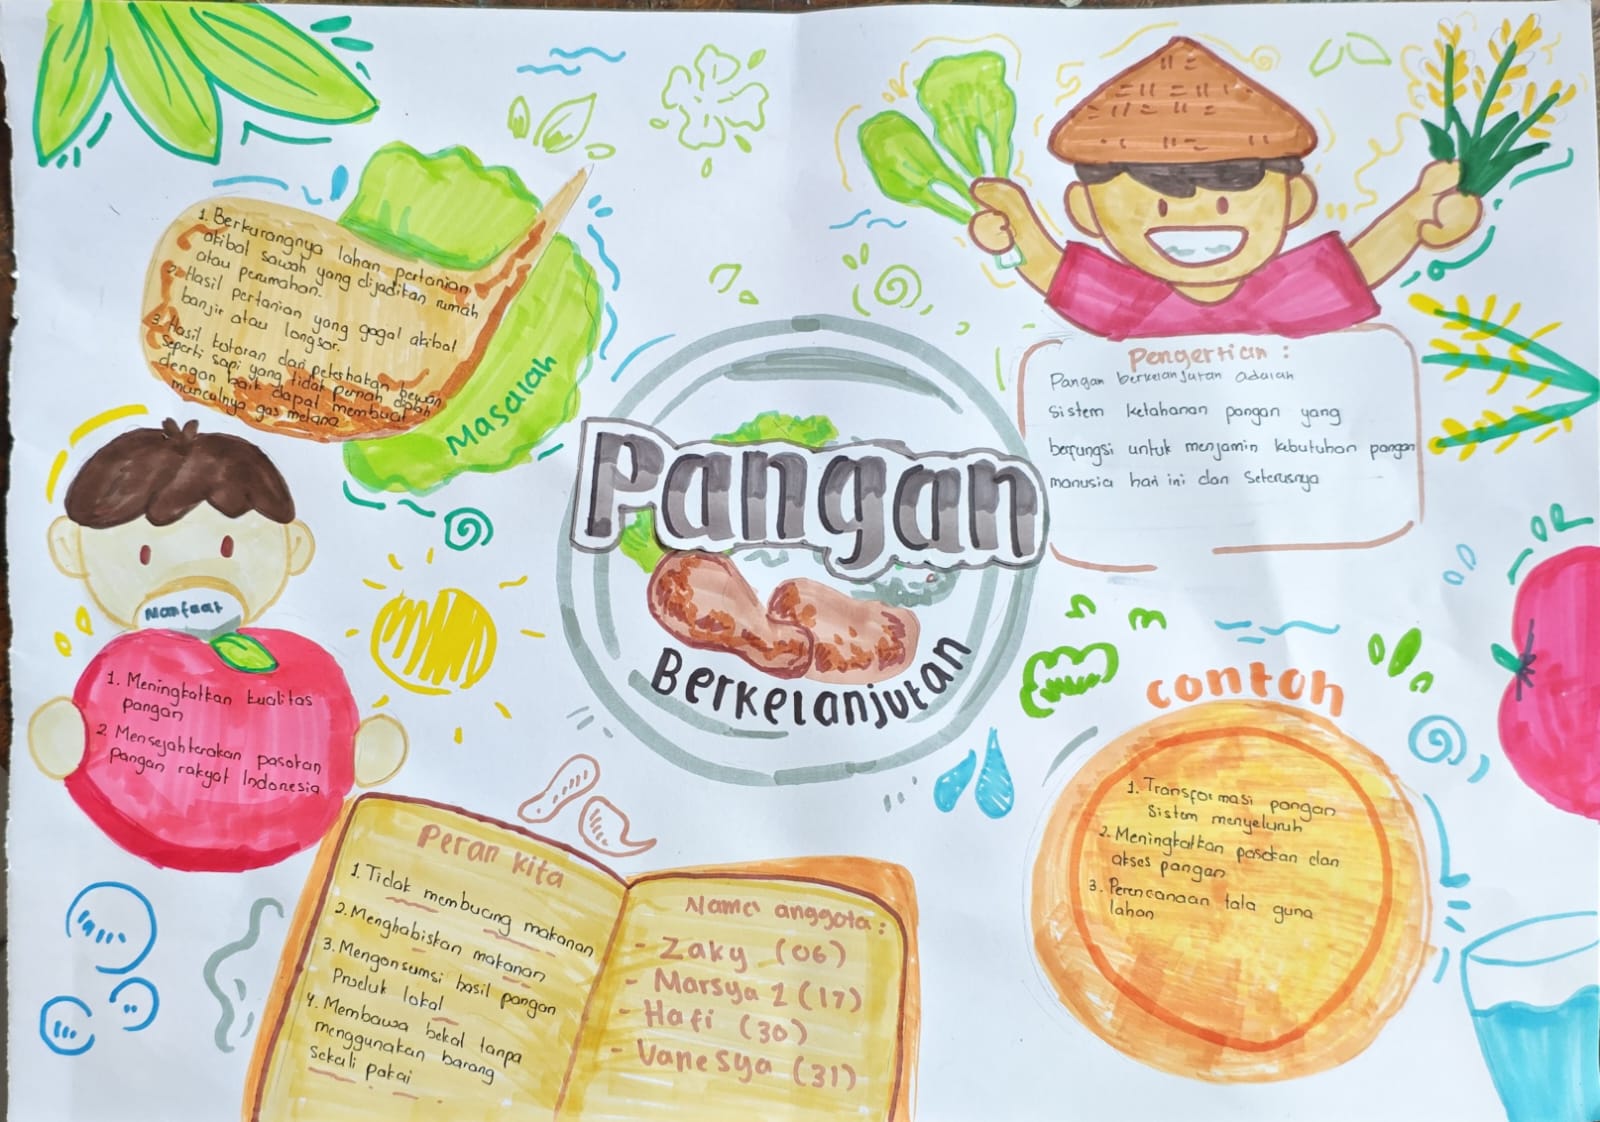 1. Berkurangnya lahan pertanian
akibat sawah yang dijadikan rumah
atau perumahan.
2. Hasil pertanian yang gagal akibat
banjir atau longsor.
3. Hasil kotoran dari peternakan hewan
seperti sapi yang tidak pernah diolah
dengan baik dapat membuat
munculnya gas metana
Masalah
Pengertian :
Pangan berkelanjutan adalah
sistem ketahanan pangan yang
berfungsi untuk menjamin kebutuhan pangan
manusia hari ini dan seterusnya
Pangan
Berkelanjutan
Manfaat
1. Meningkatkan kualitas
pangan
2. Mensejahterakan pasokan
pangan rakyat Indonesia
contoh
1. Transformasi pangan
sistem menyeluruh
2. Meningkatkan pasokan dan
akses pangan
3. Perencanaan tata guna
lahan
Peran kita
1. Tidak membuang makanan
2. Menghabiskan makanan
3. Mengonsumsi hasil pangan
Produk lokal
4. Membawa bekal tanpa
menggunakan barang
sekali pakai
Nama anggota :
- Zaky (06)
- Marsya 1 (17)
- Hafi (30)
- Vanesya (31)